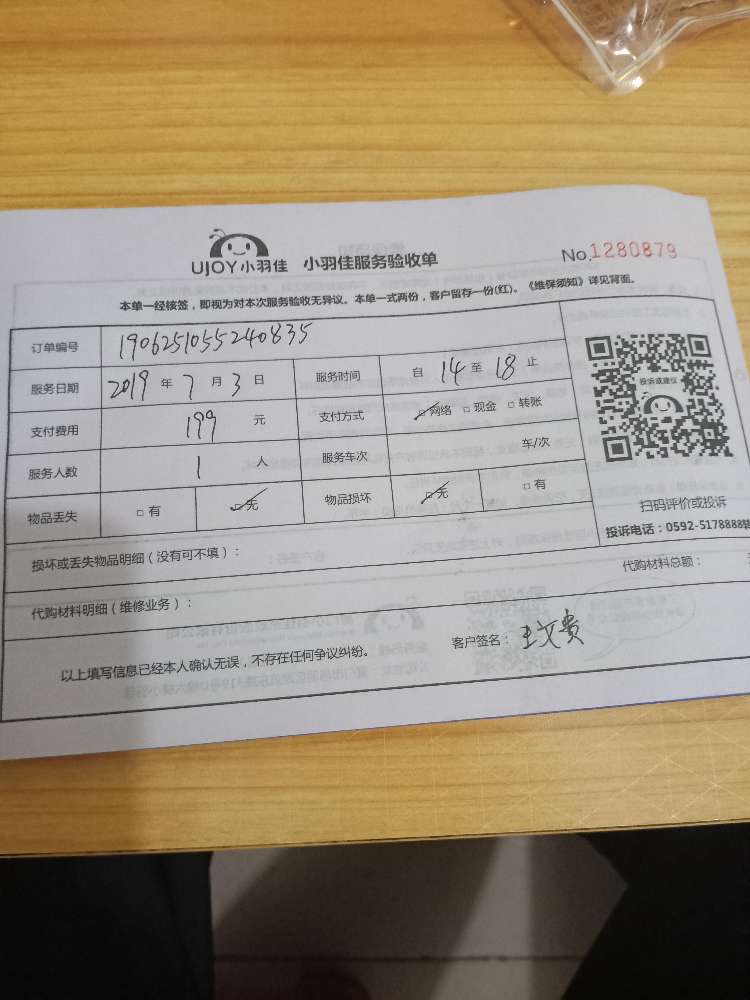 UJOY小羽佳 小羽佳服务验收单 No.1280879
本单一经核签，即视为对本次服务验收无异议。本单一式两份，客户留存一份(红)。《维保须知》详见背面。
订单编号 190625105524083５
服务日期 2019 年 7 月 3 日 服务时间 自 14 至 18 止
支付费用 199 元 支付方式 □网络 □现金 □转账
投诉或建议
服务人数 1 人 服务车次 车/次
物品丢失 □有 □无 物品损坏 □无 □有
扫码评价或投诉
投诉电话：0592-5178888
损坏或丢失物品明细（没有可不填）：
代购材料明细（维修业务）： 代购材料总额：
以上填写信息已经本人确认无误，不存在任何争议纠纷。 客户签名：王文贵